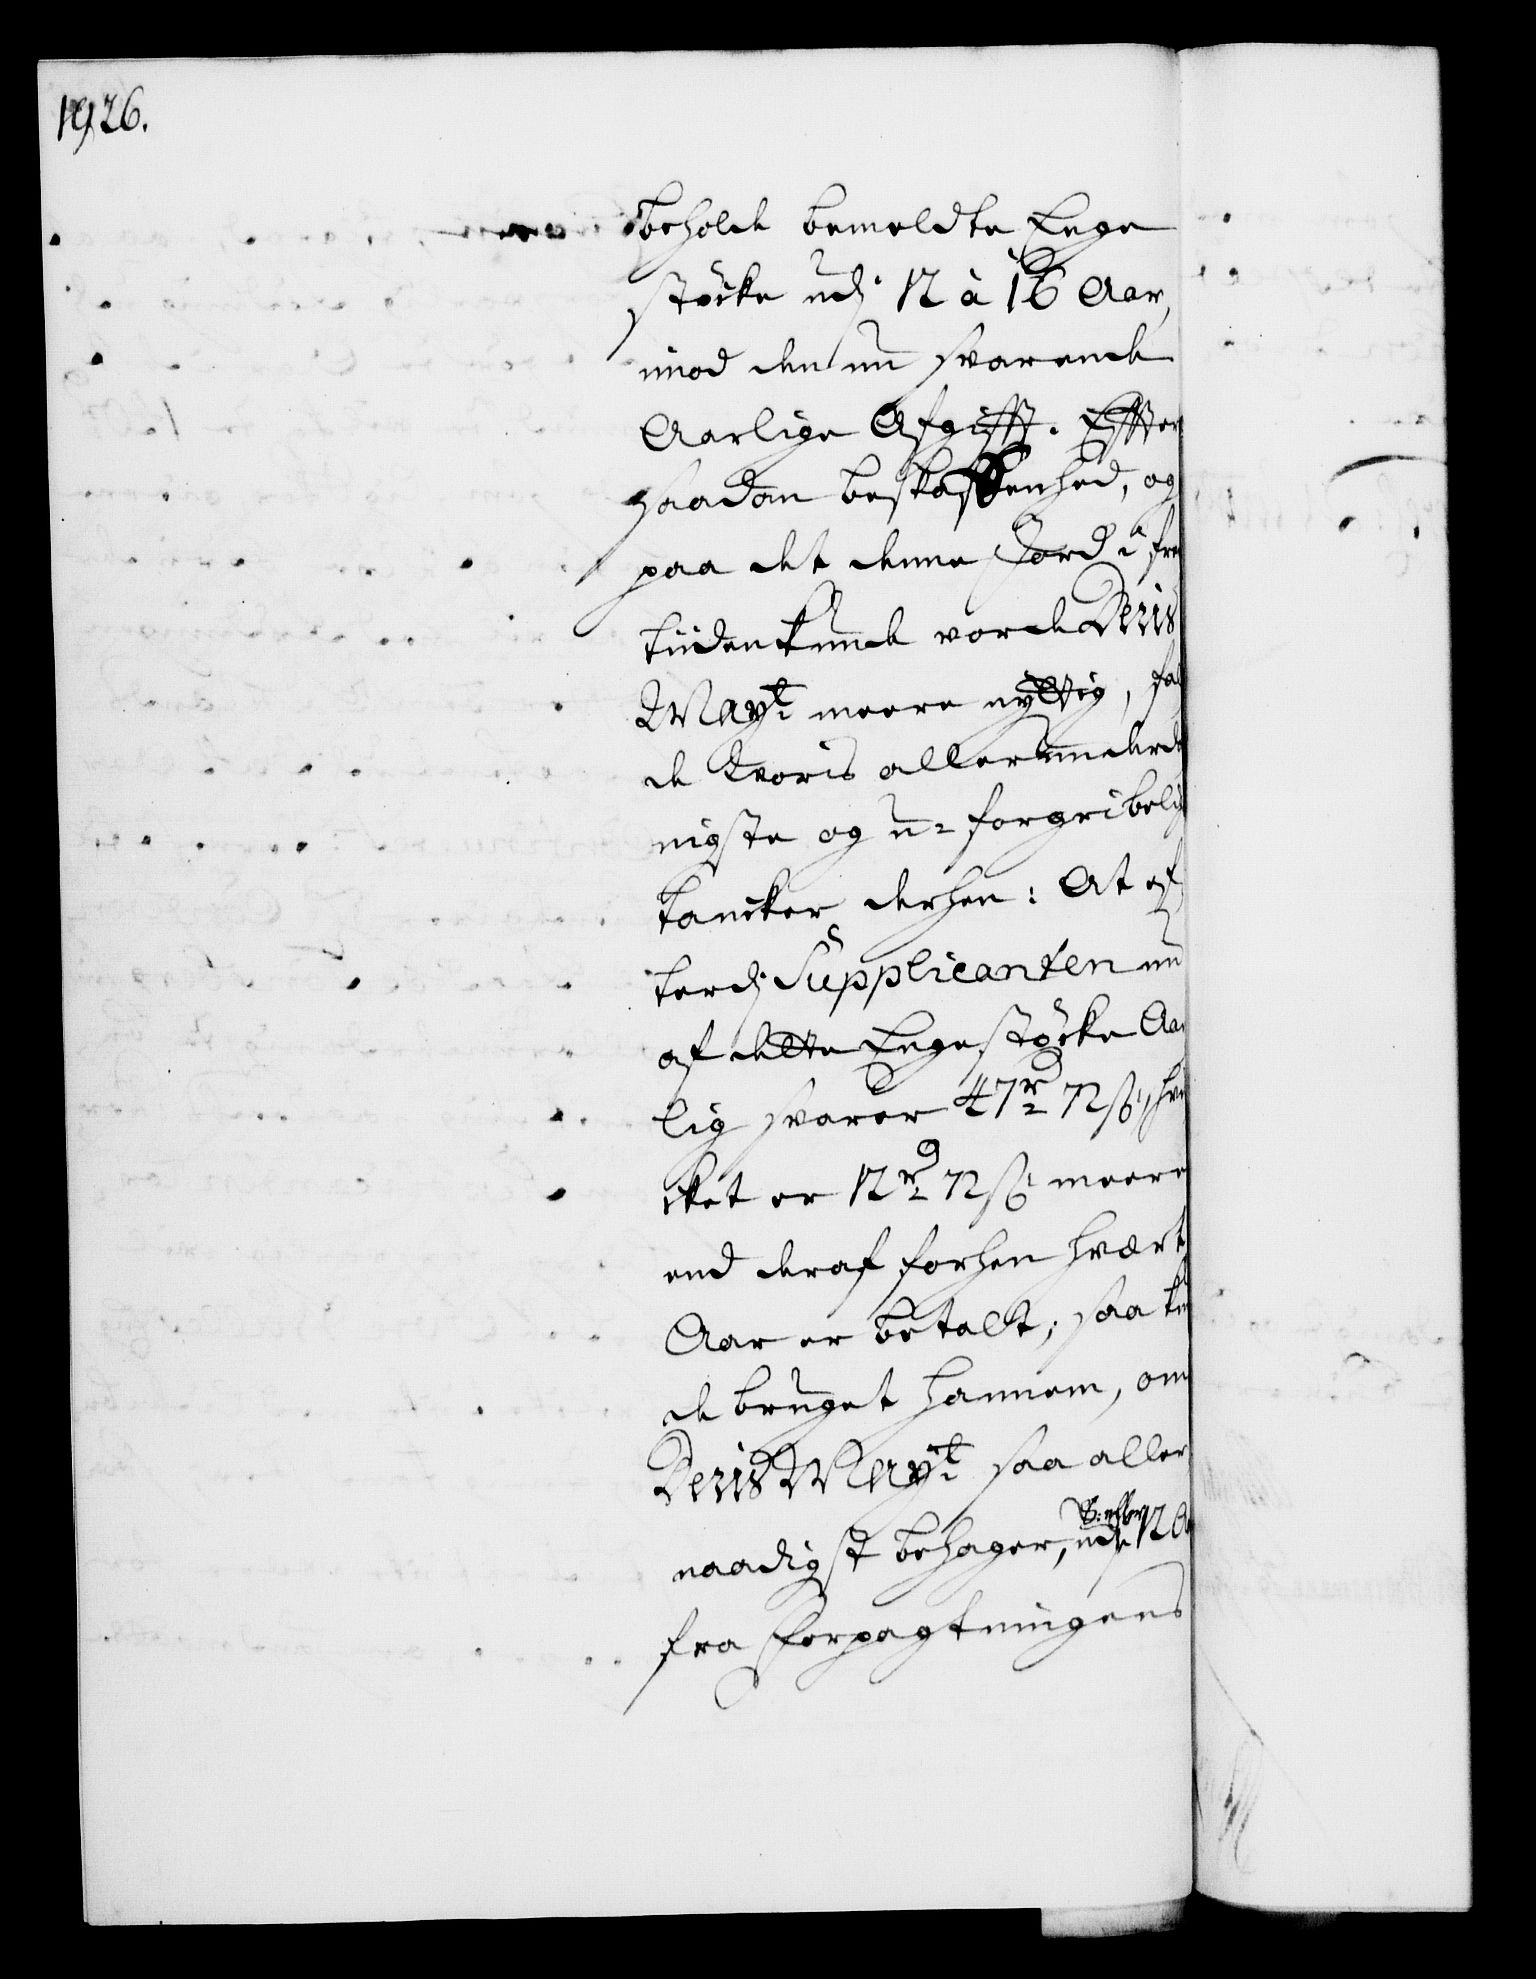 1926.
beholde bemeldte Enge
støcke udj 12 à 16 Aar,
imod den nu svarende
Aarlige Afgifft. Effter
saadan beskaffenhed, og
paa det denne Jord i fre
tiiden kunde vorde Deris
Mayt meere nyttig, fal
de Voris allerunderda
nigste og u-forgribelig
tancker derhen: At ef
terdj Supplicanten nu
af dette Engestøcke Aar
lig svarer 47 rd 72 ß, hvi
cket er 12 rd 72 ß meere
end deraf forhen hvært
Aar er betalt; saa kun
de bruget hannem, om
Deris Mayt saa aller
naadigst behager, udj 12 Aa
fra Forpagtningens